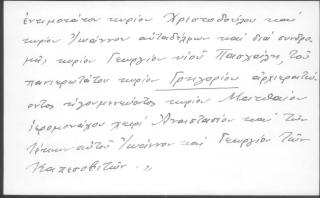 ἐντιμοτάτου κυρίου Χριστοδούλου καὶ
κυρίου Ἰωάννου αὐταδέλφων καὶ διὰ συνδρο-
μῆς κυρίου Γεωργίου υἱοῦ Πασχάλη, τοῦ
πανιερωτάτου κυρίου Γρηγορίου ἀρχιερατεύ-
οντος ἡγουμενεύοντος κυρίου Ματθαίου
ἱερομονάχου χειρὶ Ἀναστασίου καὶ τῶν
τέκνων αὐτοῦ Ἰωάννου καὶ Γεωργίου τῶν
Καπεσοβιτῶν.